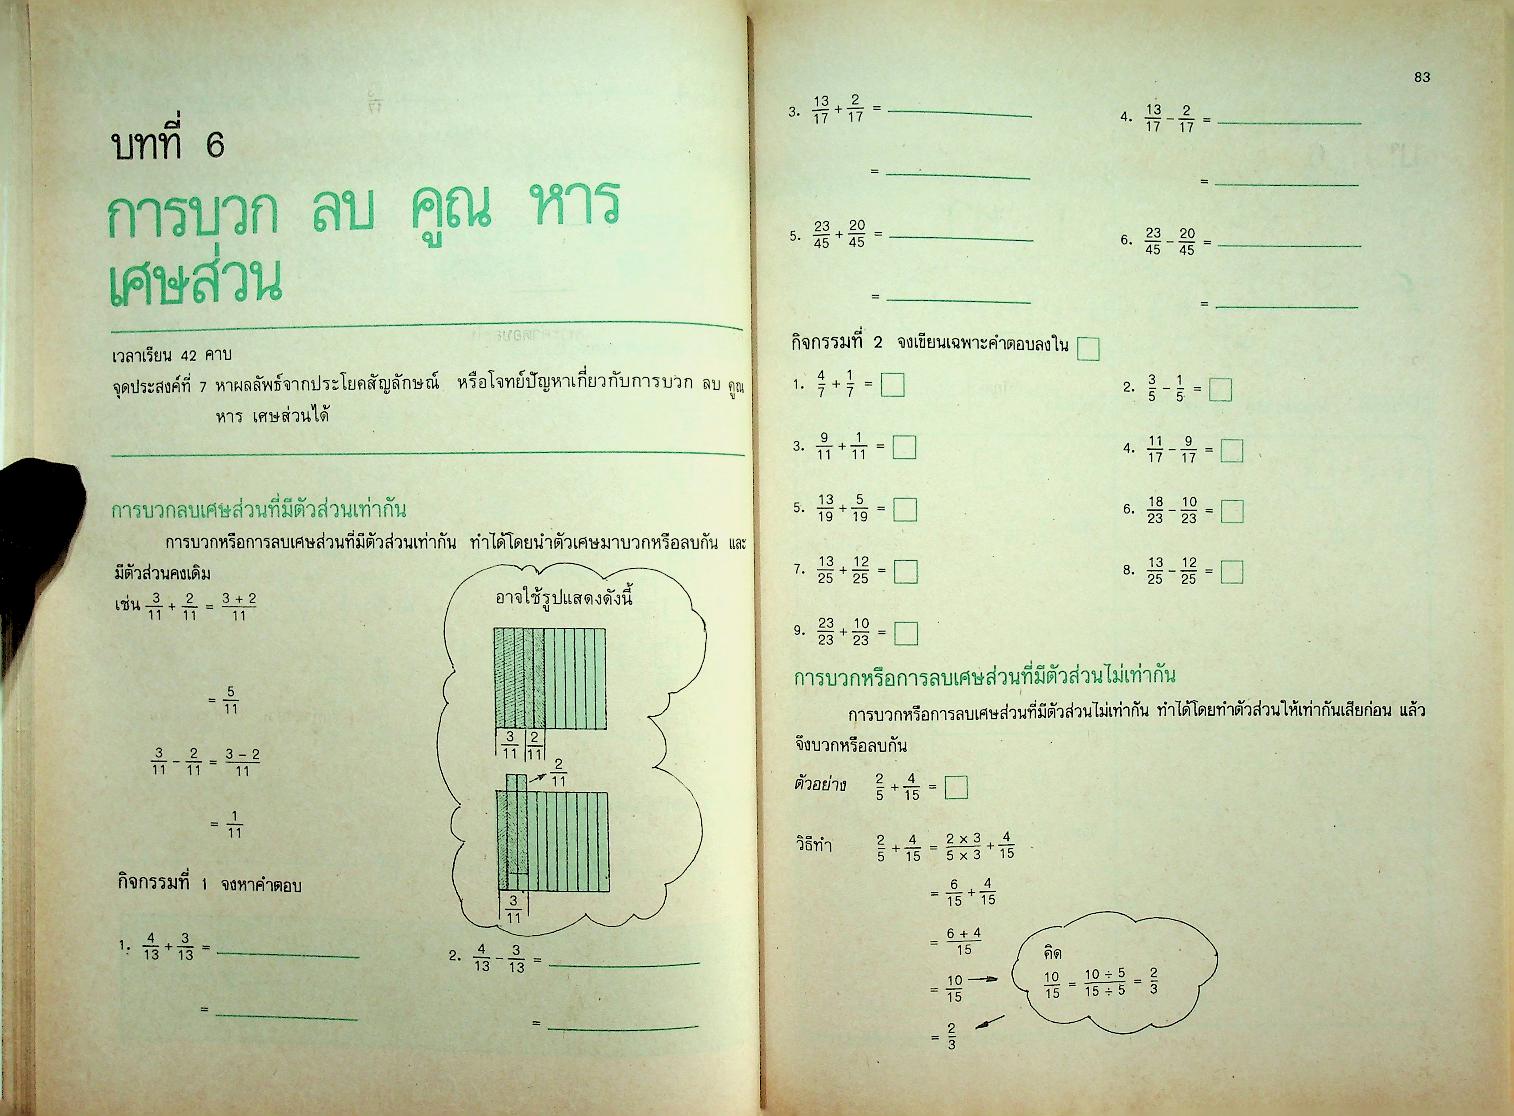 บทที่ 6
การบวก ลบ คูณ หาร
เศษส่วน
เวลาเรียน 42 คาบ
จุดประสงค์ที่ 7 หาผลลัพธ์จากประโยคสัญลักษณ์ หรือโจทย์ปัญหาเกี่ยวกับการบวก ลบ คูณ
หาร เศษส่วนได้
การบวกลบเศษส่วนที่มีตัวส่วนเท่ากัน
การบวกหรือการลบเศษส่วนที่มีตัวส่วนเท่ากัน ทำได้โดยนำตัวเศษมาบวกหรือลบกัน และ
มีตัวส่วนคงเดิม
เช่น 3/11 + 2/11 = (3 + 2)/11
= 5/11
3/11 − 2/11 = (3 − 2)/11
= 1/11
อาจใช้รูปแสดงดังนี้
3/11 2/11
2/11
3/11
กิจกรรมที่ 1 จงหาคำตอบ
1. 4/13 + 3/13 =
=
2. 4/13 − 3/13 =
=
83
3. 13/17 + 2/17 =
=
4. 13/17 − 2/17 =
=
5. 23/45 + 20/45 =
=
6. 23/45 − 20/45 =
=
กิจกรรมที่ 2 จงเขียนเฉพาะคำตอบลงใน □
1. 4/7 + 1/7 = □
2. 3/5 − 1/5 = □
3. 9/11 + 1/11 = □
4. 11/17 − 9/17 = □
5. 13/19 + 5/19 = □
6. 18/23 − 10/23 = □
7. 13/25 + 12/25 = □
8. 13/25 − 12/25 = □
9. 23/23 + 10/23 = □
การบวกหรือการลบเศษส่วนที่มีตัวส่วนไม่เท่ากัน
การบวกหรือการลบเศษส่วนที่มีตัวส่วนไม่เท่ากัน ทำได้โดยทำตัวส่วนให้เท่ากันเสียก่อน แล้ว
จึงบวกหรือลบกัน
ตัวอย่าง 2/5 + 4/15 = □
วิธีทำ 2/5 + 4/15 = (2 × 3)/(5 × 3) + 4/15
= 6/15 + 4/15
= (6 + 4)/15
= 10/15
= 2/3
คิด
10/15 = (10 ÷ 5)/(15 ÷ 5) = 2/3